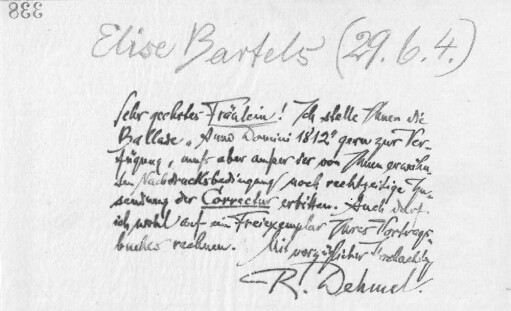 338
Elise Bartels (29.6.4.)
Sehr geehrtes Fräulein! Ich stelle Ihnen die
Ballade „Anno Domini 1812" gern zur Ver-
fügung, muß aber außer der von Ihnen erwähn-
ten Nachdrucksbedingung noch rechtzeitige Zu-
sendung der Correctur erbitten. Auch darf
ich wohl auf ein Freiexemplar Ihres Vortrags-
buches rechnen. Mit vorzüglicher Hochachtg
R. Dehmel.